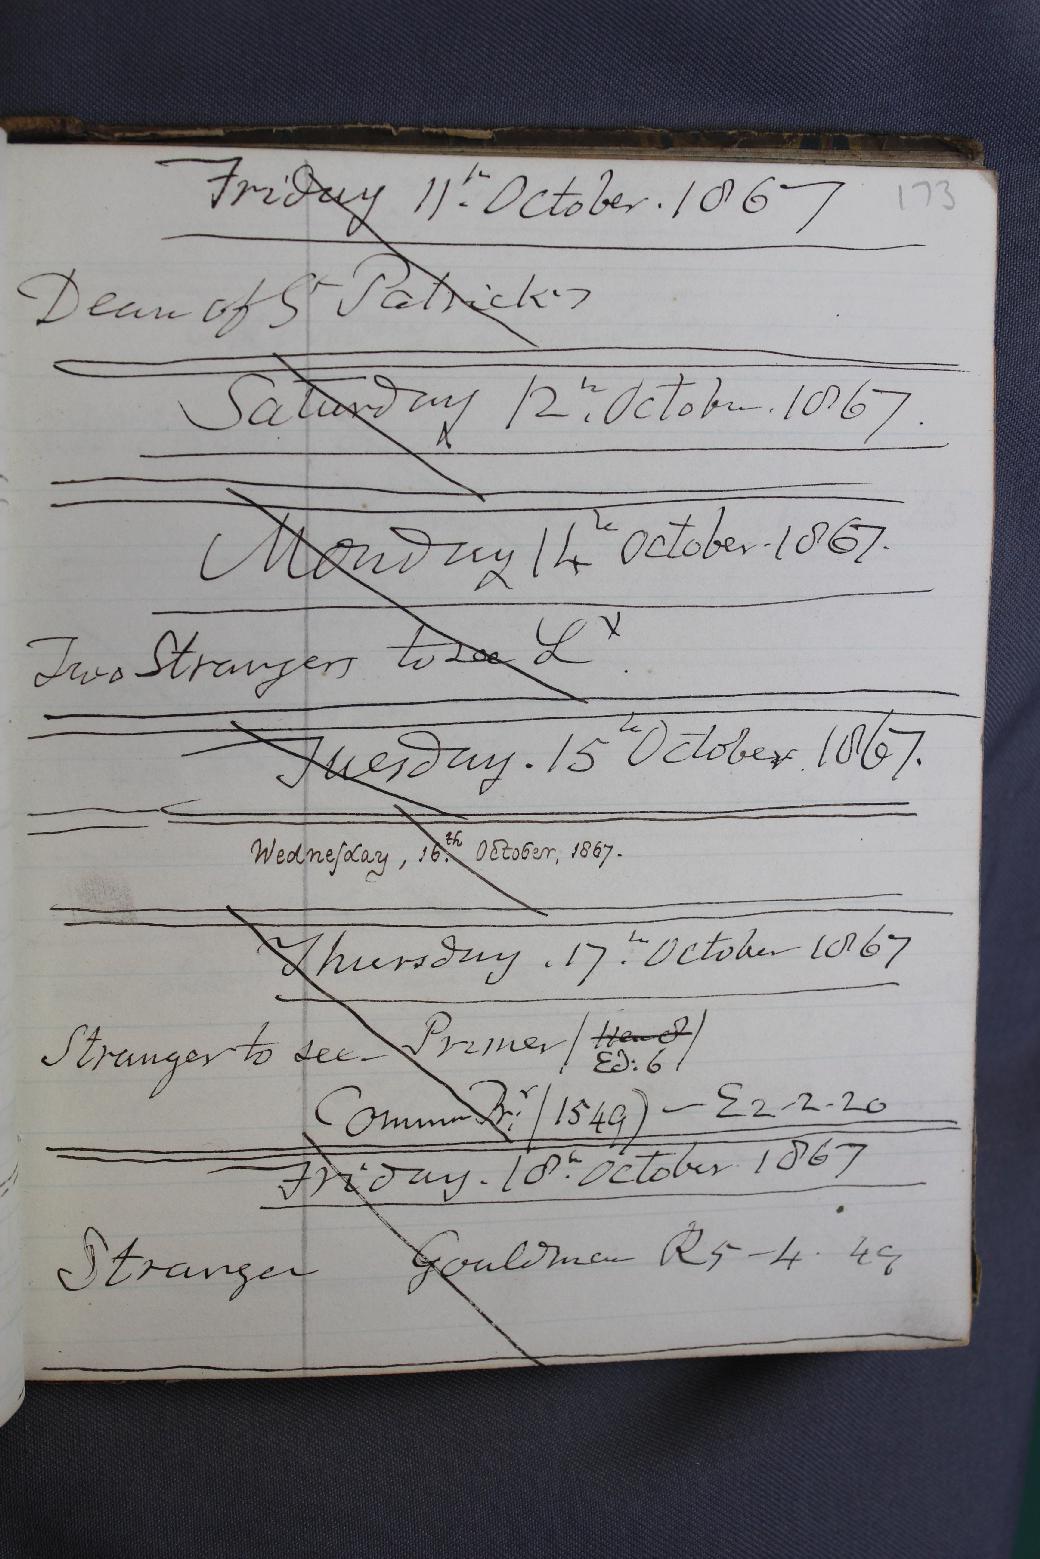 173
Friday 11th. October. 1867
Dean of St Patrick's
Saturday 12th. October. 1867.
x
Monday 14th October. 1867.
Two Strangers to see Ly.
Tuesday. 15th October 1867.
Wedneſday, 16th. October, 1867.
Thursday. 17th. October 1867
Stranger to see - Primer (Hen 8)
Ed: 6
Common Pr:r (1549) - E2-2-20
Friday. 18th. October 1867
Stranger Gouldman R5-4. 49